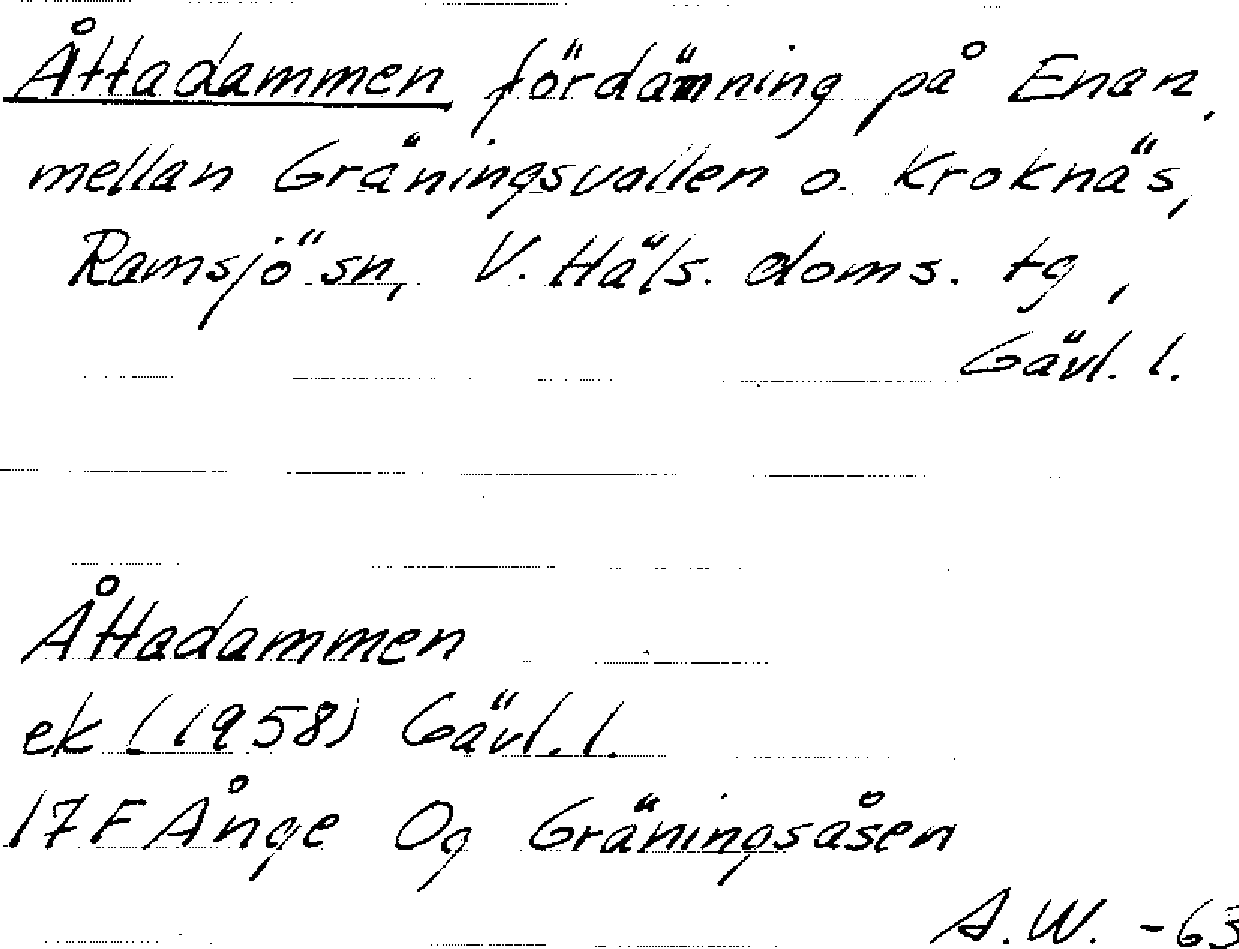 Åttadammen fördämning på Enan,
mellan Gräningsvallen o. Kroknäs,
Ramsjö sn, V. Häls. doms. tg,
Gävl. l.
Åttadammen
ek (1958) Gävl. l.
17F Ånge Og Gräningsåsen
A.W. -63